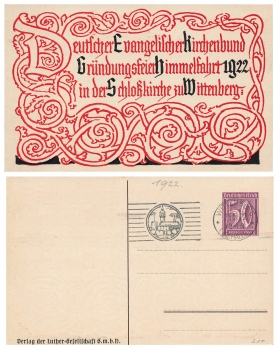 Deutscher Evangelischer Kirchenbund
Gründungsfeier Himmelfahrt 1922
in der Schloßkirche zu Wittenberg
1922
Deutsches Reich
50
Verlag der Luther-Gesellschaft G.m.b.H.